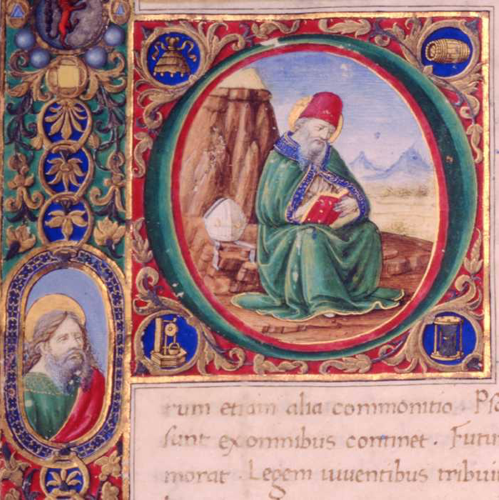 rum etiam alia commonitio. Ps
sunt ex omnibus continet. Futu
morat. Legem viventibus tribui